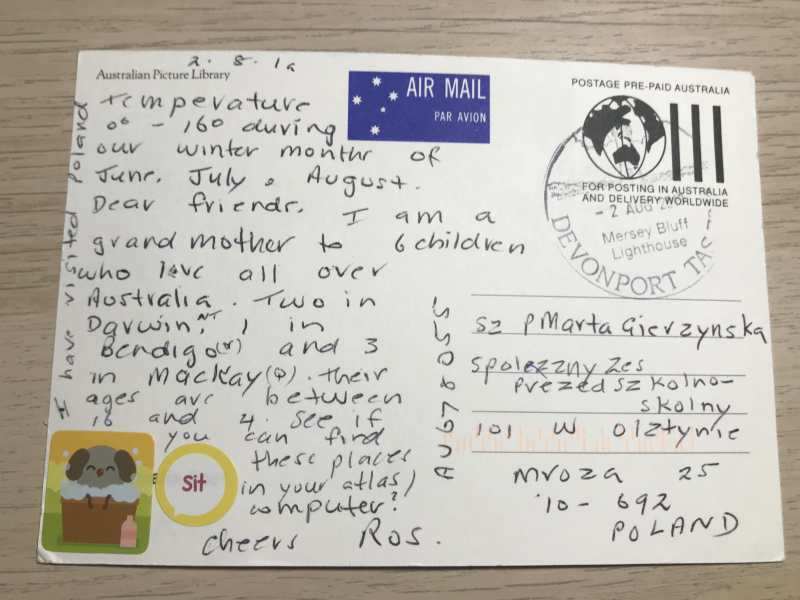 2. 8. 19
Australian Picture Library
temperature
0° - 16° during
our winter months of
June, July & August.
Dear friends, I am a
grandmother to 6 children
who live all over
Australia. Two in
Darwin, NT 1 in
Bendigo(V) and 3
in Mackay(Q). Their
ages are between
16 and 4. See if
you can find
these places
in your atlas/
computer?
Cheers Ros.
I have visited Poland
Sit
AIR MAIL
PAR AVION
POSTAGE PRE-PAID AUSTRALIA
FOR POSTING IN AUSTRALIA
AND DELIVERY WORLDWIDE
- 2 AUG
Mersey Bluff
Lighthouse
DEVONPORT TAS
AU678055
SZ P Marta Gierzynska
Spolezzny Zes
Prezed sz kolno-
skolny
101 W Olztynie
Mroza 25
10 - 692
POLAND